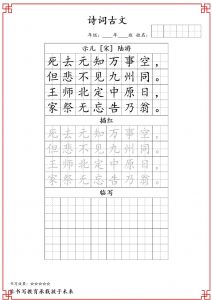 诗词古文
年级:____年____班 姓名:
示儿 [宋] 陆游
死去元知万事空，
但悲不见九州同。
王师北定中原日，
家祭无忘告乃翁。
描红
死去元知万事空，
但悲不见九州同。
王师北定中原日，
家祭无忘告乃翁。
临写
书写效果：☆☆☆☆☆